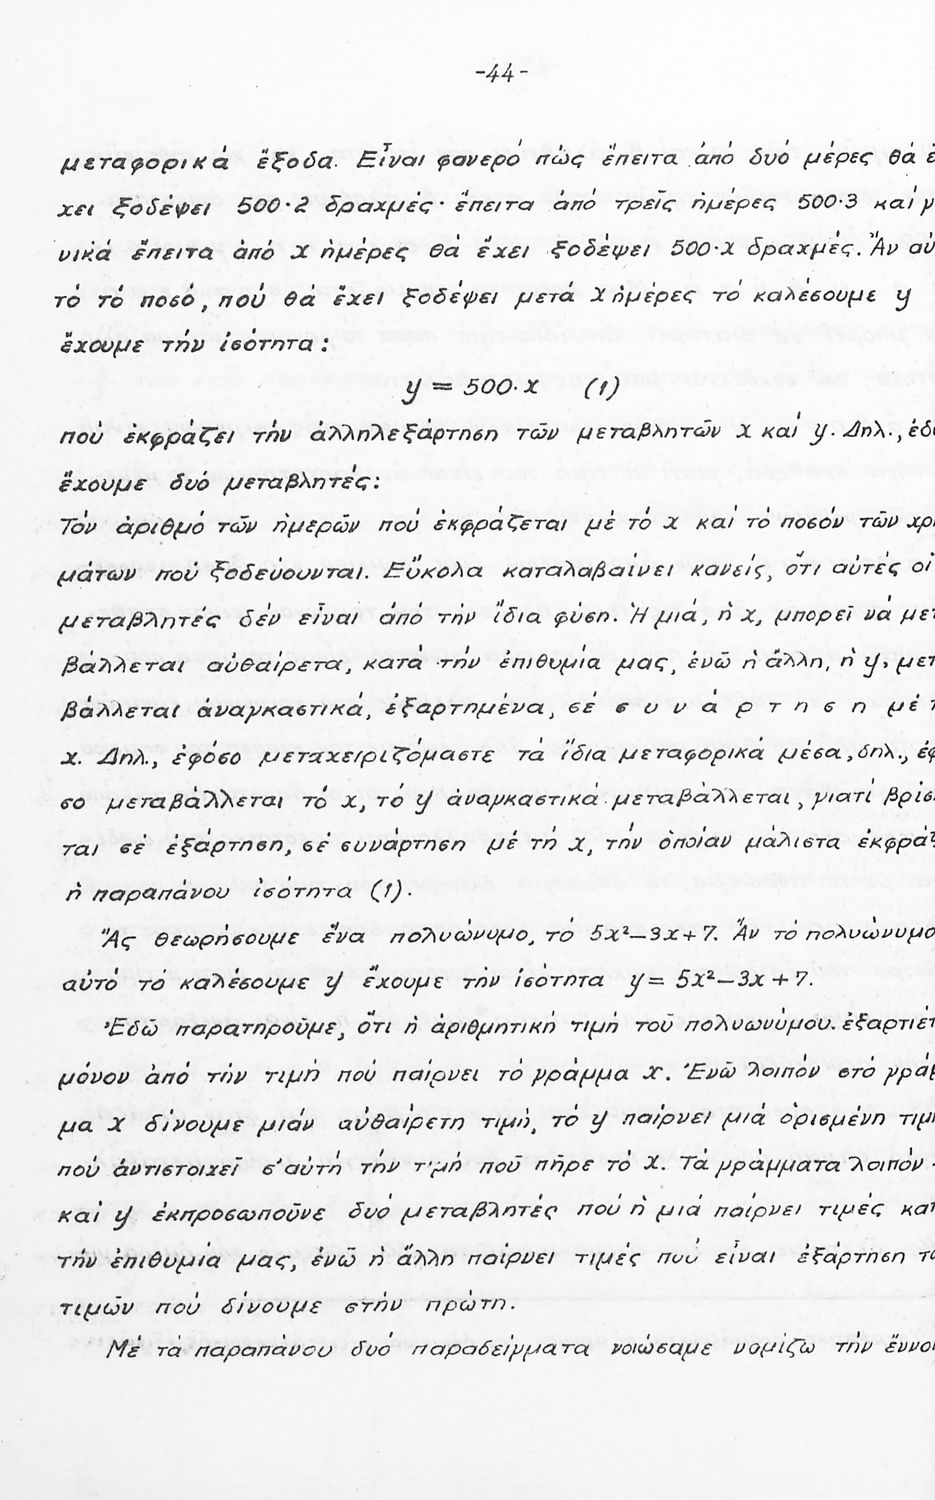 -44-
μεταφορικά ἔξοδα. Εἶναι φανερό πώς ἔπειτα ἀπό δυό μέρες θά ἐ
χει ξοδέψει 500·2 δραχμές· ἔπειτα ἀπό τρεῖς ἡμέρες 500·3 καί γ
νικά ἔπειτα ἀπό x ἡμέρες θά ἔχει ξοδέψει 500·x δραχμές. Ἄν αὐ
τό τό ποσό, πού θά ἔχει ξοδέψει μετά x ἡμέρες τό καλέσουμε y
ἔχουμε τήν ἰσότητα:
y = 500·x (1)
πού ἐκφράζει τήν ἀλληλεξάρτηση τῶν μεταβλητῶν x καί y. Δηλ., ἐδ
ἔχουμε δυό μεταβλητές:
Τόν ἀριθμό τῶν ἡμερῶν πού ἐκφράζεται μέ τό x καί τό ποσόν τῶν χρ
μάτων πού ξοδεύουνται. Εὔκολα καταλαβαίνει κανείς, ὅτι αὐτές οἱ
μεταβλητές δέν εἶναι ἀπό τήν ἴδια φύση. Ἡ μιά, ἡ x, μπορεῖ νά μετ
βάλλεται αὐθαίρετα, κατά τήν ἐπιθυμία μας, ἐνῶ ἡ ἄλλη, ἡ y, μετ
βάλλεται ἀναγκαστικά, ἐξαρτημένα, σέ σ υ ν ά ρ τ η σ η μέ τ
x. Δηλ., ἐφόσο μεταχειριζόμαστε τά ἴδια μεταφορικά μέσα, δηλ., ἐφ
σο μεταβάλλεται τό x, τό y ἀναγκαστικά μεταβάλλεται, γιατί βρίσ
ται σέ ἐξάρτηση, σέ συνάρτηση μέ τή x, τήν ὁποίαν μάλιστα ἐκφρά
ἡ παραπάνου ἰσότητα (1).
Ἄς θεωρήσουμε ἕνα πολυώνυμο, τό 5x²-3x+7. Ἄν τό πολυώνυμο
αὐτό τό καλέσουμε y ἔχουμε τήν ἰσότητα y= 5x²-3x+7.
Ἐδῶ παρατηροῦμε, ὅτι ἡ ἀριθμητική τιμή τοῦ πολυωνύμου. ἐξαρτιέτ
μόνον ἀπό τήν τιμή πού παίρνει τό γράμμα x. Ἐνῶ λοιπόν στό γράμ
μα x δίνουμε μιάν αὐθαίρετη τιμή, τό y παίρνει μιά ὁρισμένη τιμ
πού ἀντιστοιχεῖ σ'αὐτή τήν τιμή πού πῆρε τό x. Τά γράμματα λοιπόν
καί y ἐκπροσωποῦνε δυό μεταβλητές πού ἡ μιά παίρνει τιμές κατ
τήν ἐπιθυμία μας, ἐνῶ ἡ ἄλλη παίρνει τιμές πού εἶναι ἐξάρτηση τ
τιμῶν πού δίνουμε στήν πρώτη.
Μέ τά παραπάνου δυό παραδείγματα νοιώσαμε νομίζω τήν ἔννο